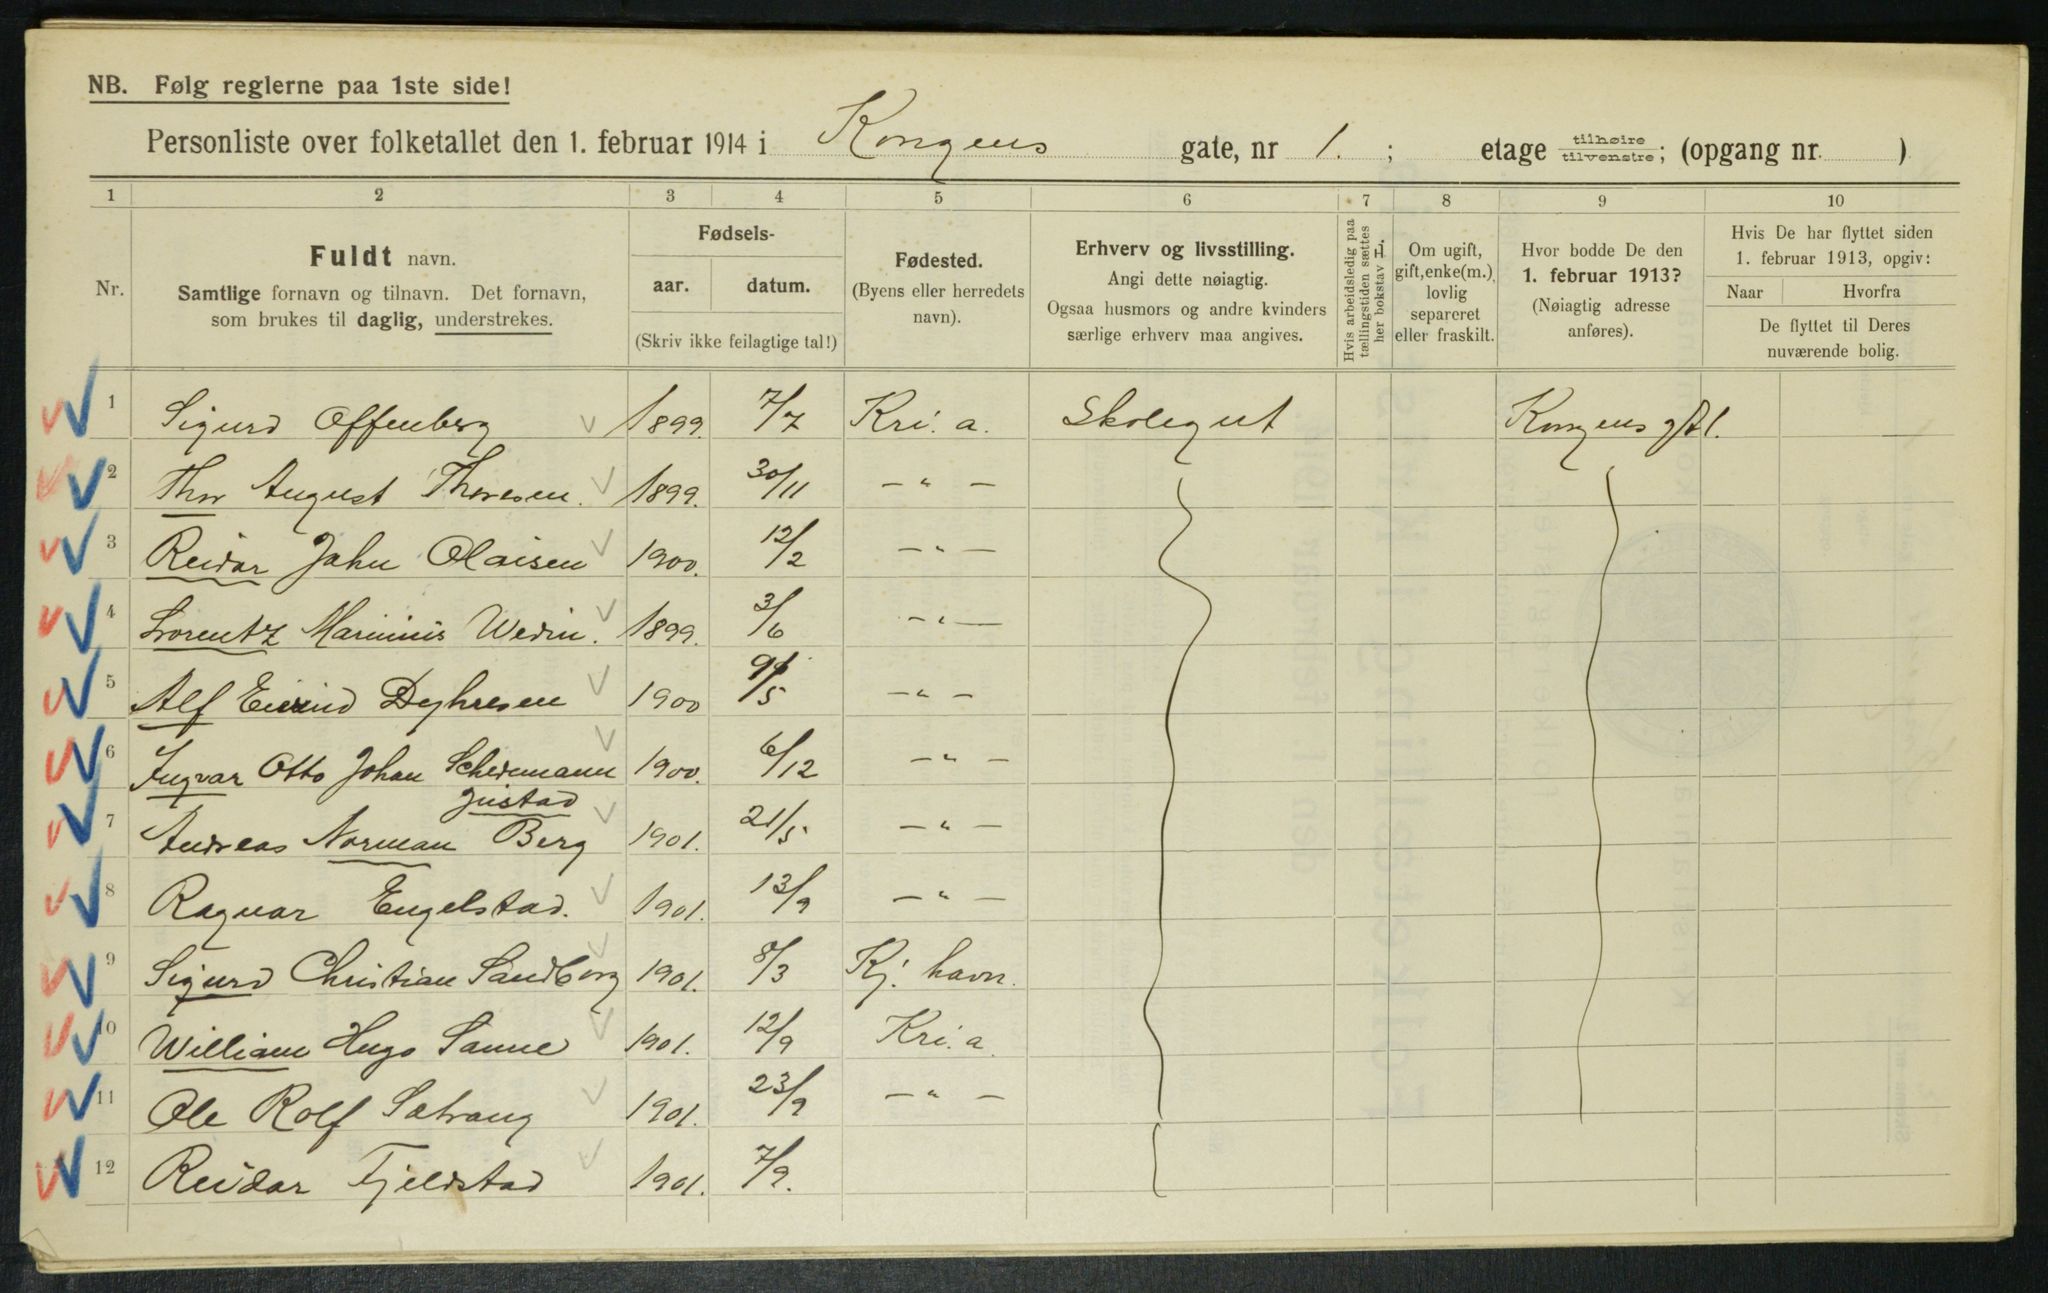 NB. Følg reglerne paa 1ste side!
Personliste over folketallet den 1. februar 1914 i Kongens gate, nr 1. ; etage tilhøire/tilvenstre; (opgang nr. )
1 2 3 4 5 6 7 8 9 10
Nr.
Fuldt navn.
Samtlige fornavn og tilnavn. Det fornavn,
som brukes til daglig, understrekes.
Fødsels-
aar. datum.
(Skriv ikke feilagtige tal!)
Fødested.
(Byens eller herredets
navn).
Erhverv og livsstilling.
Angi dette nøiagtig.
Ogsaa husmors og andre kvinders
særlige erhverv maa angives.
Hvis arbeidsledig paa
tællingstiden sættes
her bokstav L.
Om ugift,
gift, enke(m.),
lovlig
separeret
eller fraskilt.
Hvor bodde De den
1. februar 1913?
(Nøiagtig adresse
anføres).
Hvis De har flyttet siden
1. februar 1913, opgiv:
Naar Hvorfra
De flyttet til Deres
nuværende bolig.
1 Sigurd Offenberg 1899. 7/7 Kri. a. Skolegut Kongens gt 1.
2 Thor August Thoresen. 1899. 30/11 — " —
3 Reidar Jahn Olaisen 1900. 12/2 — " —
4 Lorentz Marinius Wedin. 1899. 3/6 — " —
5 Alf Eivind Dyhresen 1900 9/5 — " —
6 Ingvar Otto Johan Scheremann 1900. 6/12 — " —
Justad
7 Andreas Norman Berg 1901. 21/5 — " —
8 Ragnar Engelstad. 1901. 13/9 — " —
9 Sigurd Christian Sandborg 1901. 8/3 Kj. havn.
10 William Hugo Sanne 1901. 12/9 Kri. a.
11 Ole Rolf Sætrang 1901. 23/9 — " —
12 Reidar Fjeldstad 1901. 7/9.